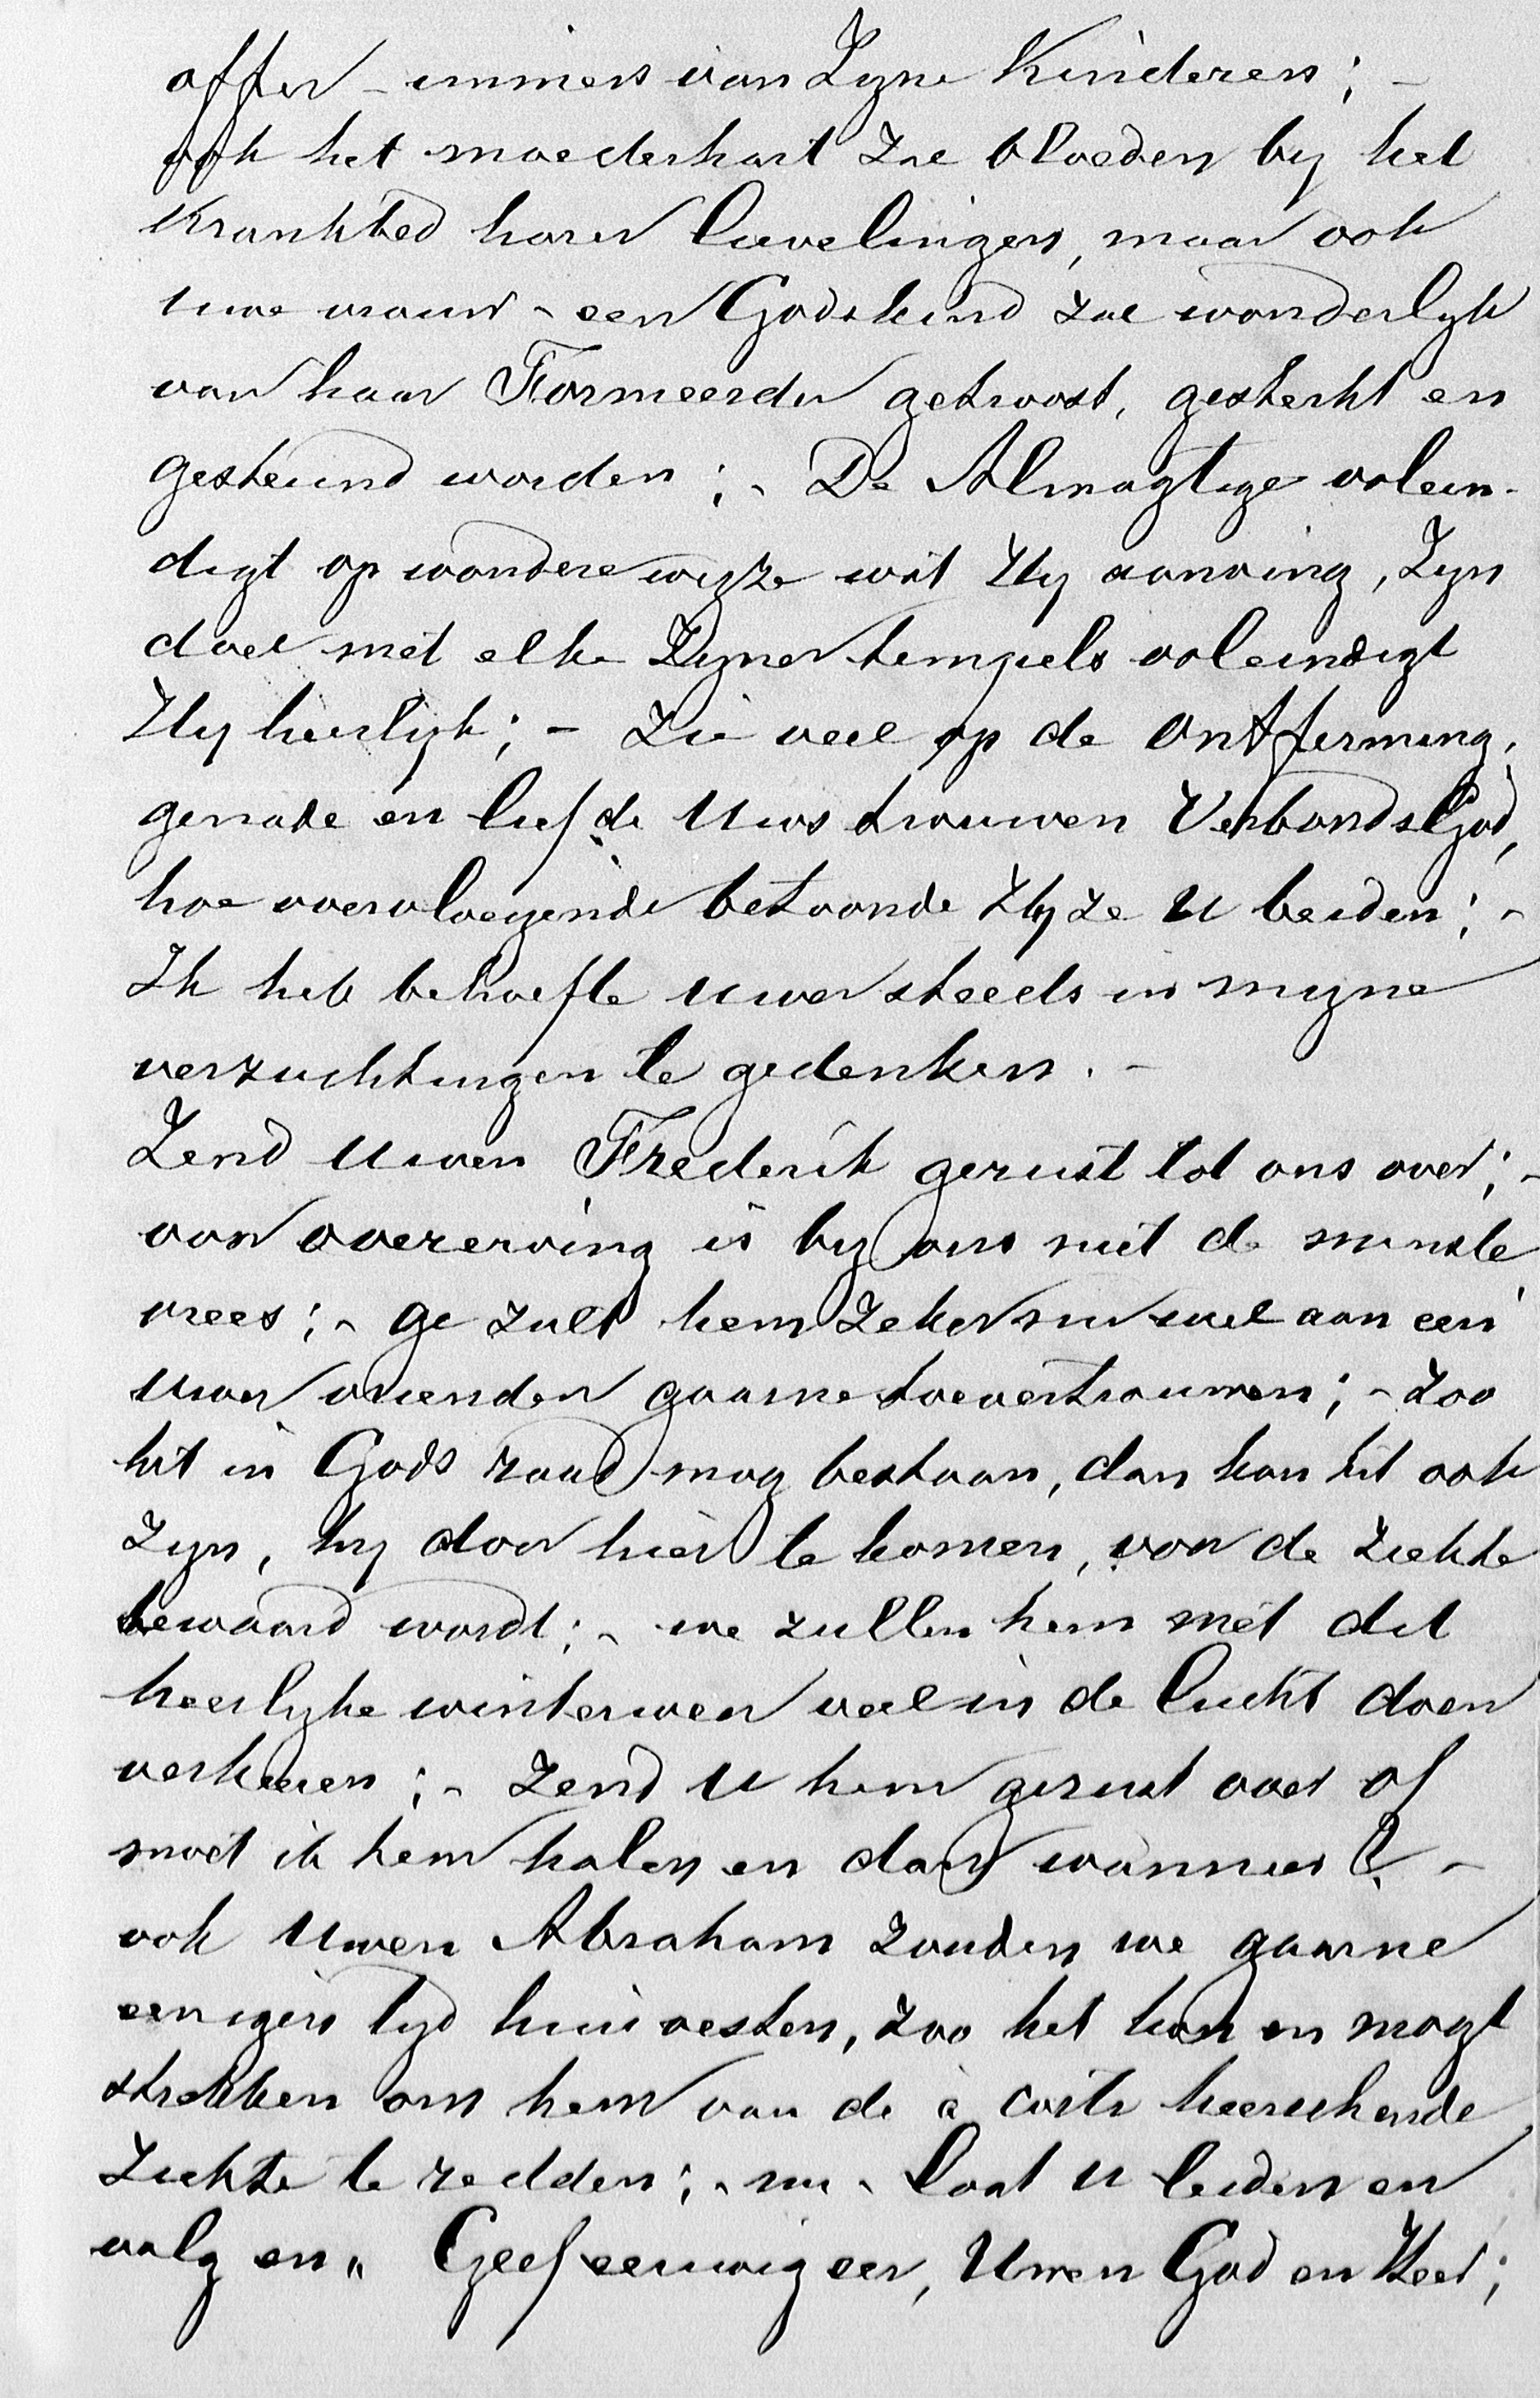 offer – immers van Zyne Kinderen; –
ook het moederhart zal bloeden by het
krankbed harer lievelingen, maar ook
uwe vrouw – een Godskind zal wonderlyk
van haar Formeerder getroost, gesterkt en
gesteund worden; – De Almagtige volein-
digt op wondere wyze wat Hy aanving, Zyn
doel met elk Zyner tempels voleindigt
Hy heerlyk; – Zie veel op de Ontferming,
genade en liefde Uws trouwen VerbondsGod,
hoe overvloeyende betoonde Hy ze U beiden; –
Ik heb behoefte uwer steeds in myne
verzuchtingen te gedenken. –
Zend Uwen Frederik gerust tot ons over; –
van overerving is by ons niet de minste
vrees; – ge zult hem zeker nu wel aan een
Uwer vrienden gaarne toevertrouwen; – zoo
het in Gods raad mag bestaan, dan kan het ook
zyn, hy door hier te komen, voor de ziekte
bewaard wordt; – we zullen hem met dit
heerlyke winterweer veel in de lucht doen
verkeeren; – Zend U hem gerust over of
moet ik hem halen en dan wanneer? –
ook Uwen Abraham zouden we gaarne
eenigen tyd huisvesten, zoo het kon en mogt
strekken om hem van de à coité heerschende
Ziekte te redden; – nu – laat U leiden en
volg en „ Geef eeuwig eer, Uwen God en Heer;